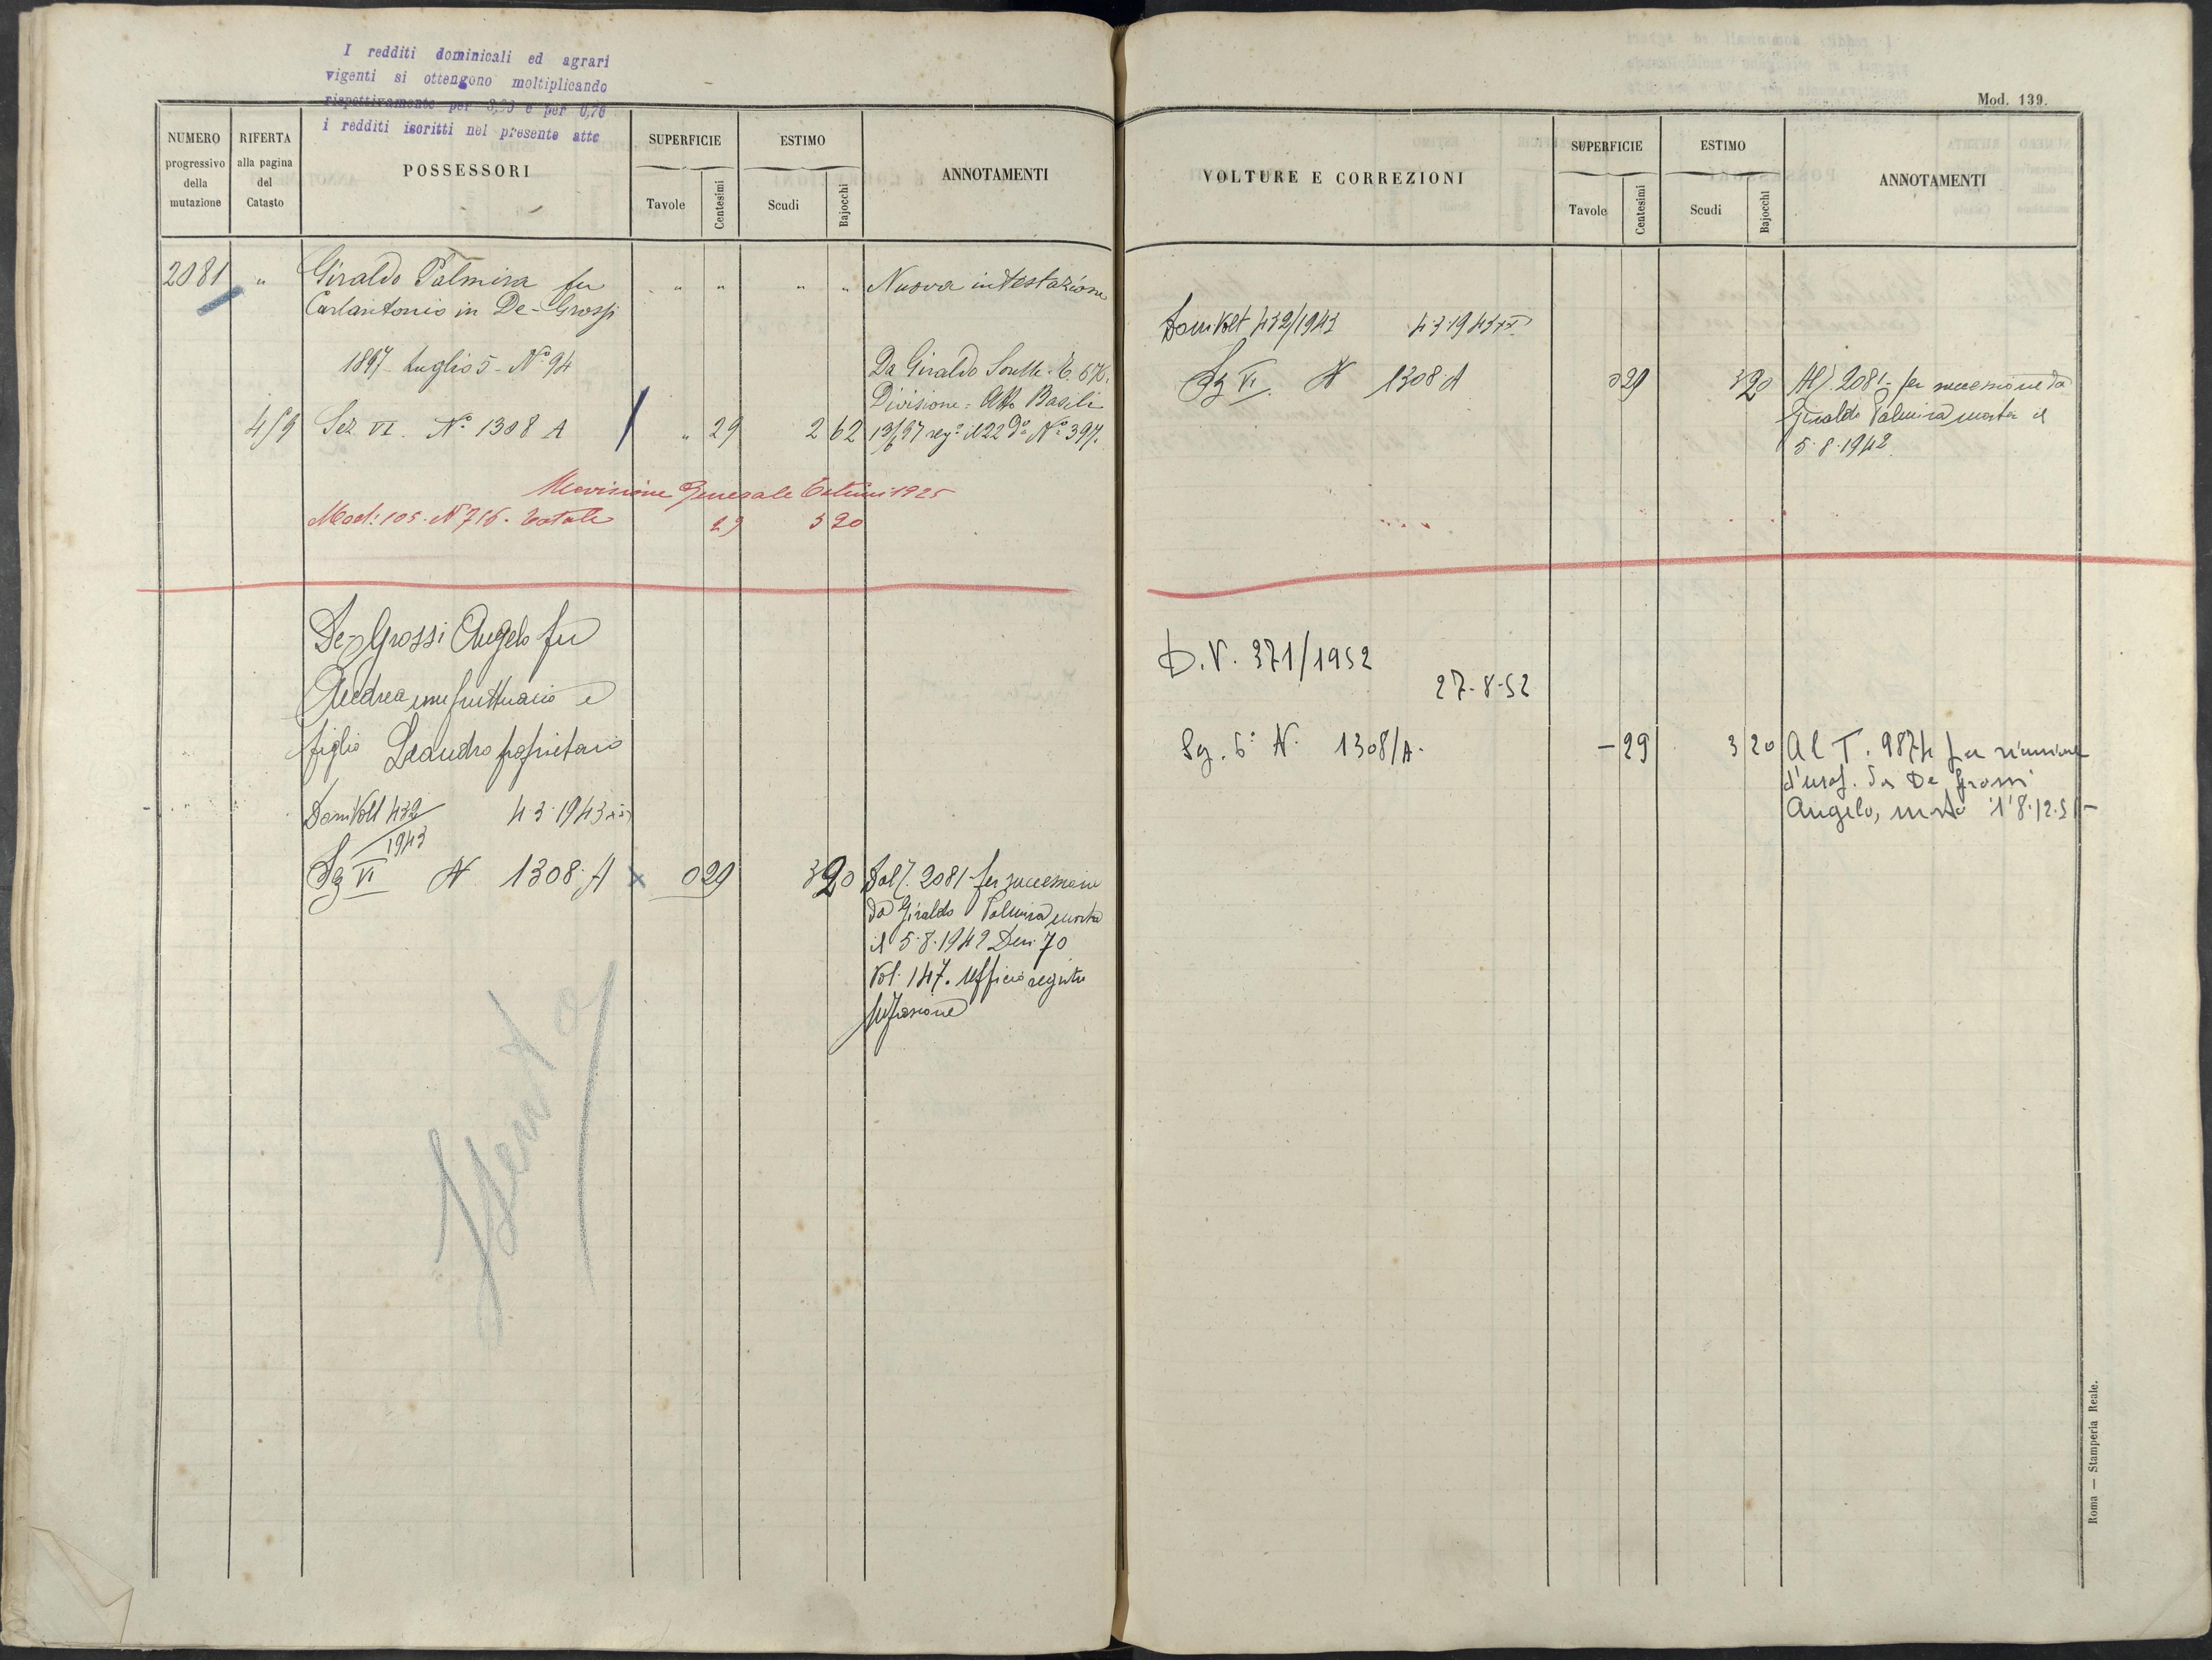 I redditi dominicali ed agrari
vigenti si ottengono moltiplicando
rispettivamente per e per 0,70
i redditi iscritti nel presente atto
NUMERO
progressivo
della
mutazione
RIFERTA
alla pagina
del
Catasto
POSSESSORI
SUPERFICIE
Tavole
Centesimi
ESTIMO
Scudi
Bajocchi
ANNOTAMENTI
2081 " Giraldo Palmira fu " " " " Nuova intestazione
Carlantonio in De-Grossi
1897 Luglio 5 - N.º 94 Da Giraldo
Divisione = Atto Basili
Sez VI. N.º 1308 A " 29 2 62 13/6 97 reg.º il 22 d.º N.º 397.
Revisione Generale Estimi 1925
Mod: 105. N 716. Totale 29 3 20
De-Grossi Angelo fu
Andrea usufruttuario e
figlio Leandro proprietario
Dom Volt 432/1943 4.3.1943
Sz VI N 1308. A x 0 29 3 20 Dal T. 2081 per successione
da Giraldo Palmira morta
il 5.8.1942 Den. 70
Vol. 147. Ufficio registro
Isento
Mod. 139.
VOLTURE E CORREZIONI
SUPERFICIE
Tavole
Centesimi
ESTIMO
Scudi
Bajocchi
ANNOTAMENTI
Dom Volt 432/1943 4.3.1943
Sz VI. N 1308. A 0 29 3 20 Al T. 2081 - per successione da
Giraldo Palmira morta il
5.8.1942
D.V. 371/1952
27-8-52
Sz. 6º N. 1308/A. - 29 3 20 Al T. 9874 per riunione
d'usuf. da De Grossi
Angelo, morto l'8.12.51-
Roma — Stamperia Reale.